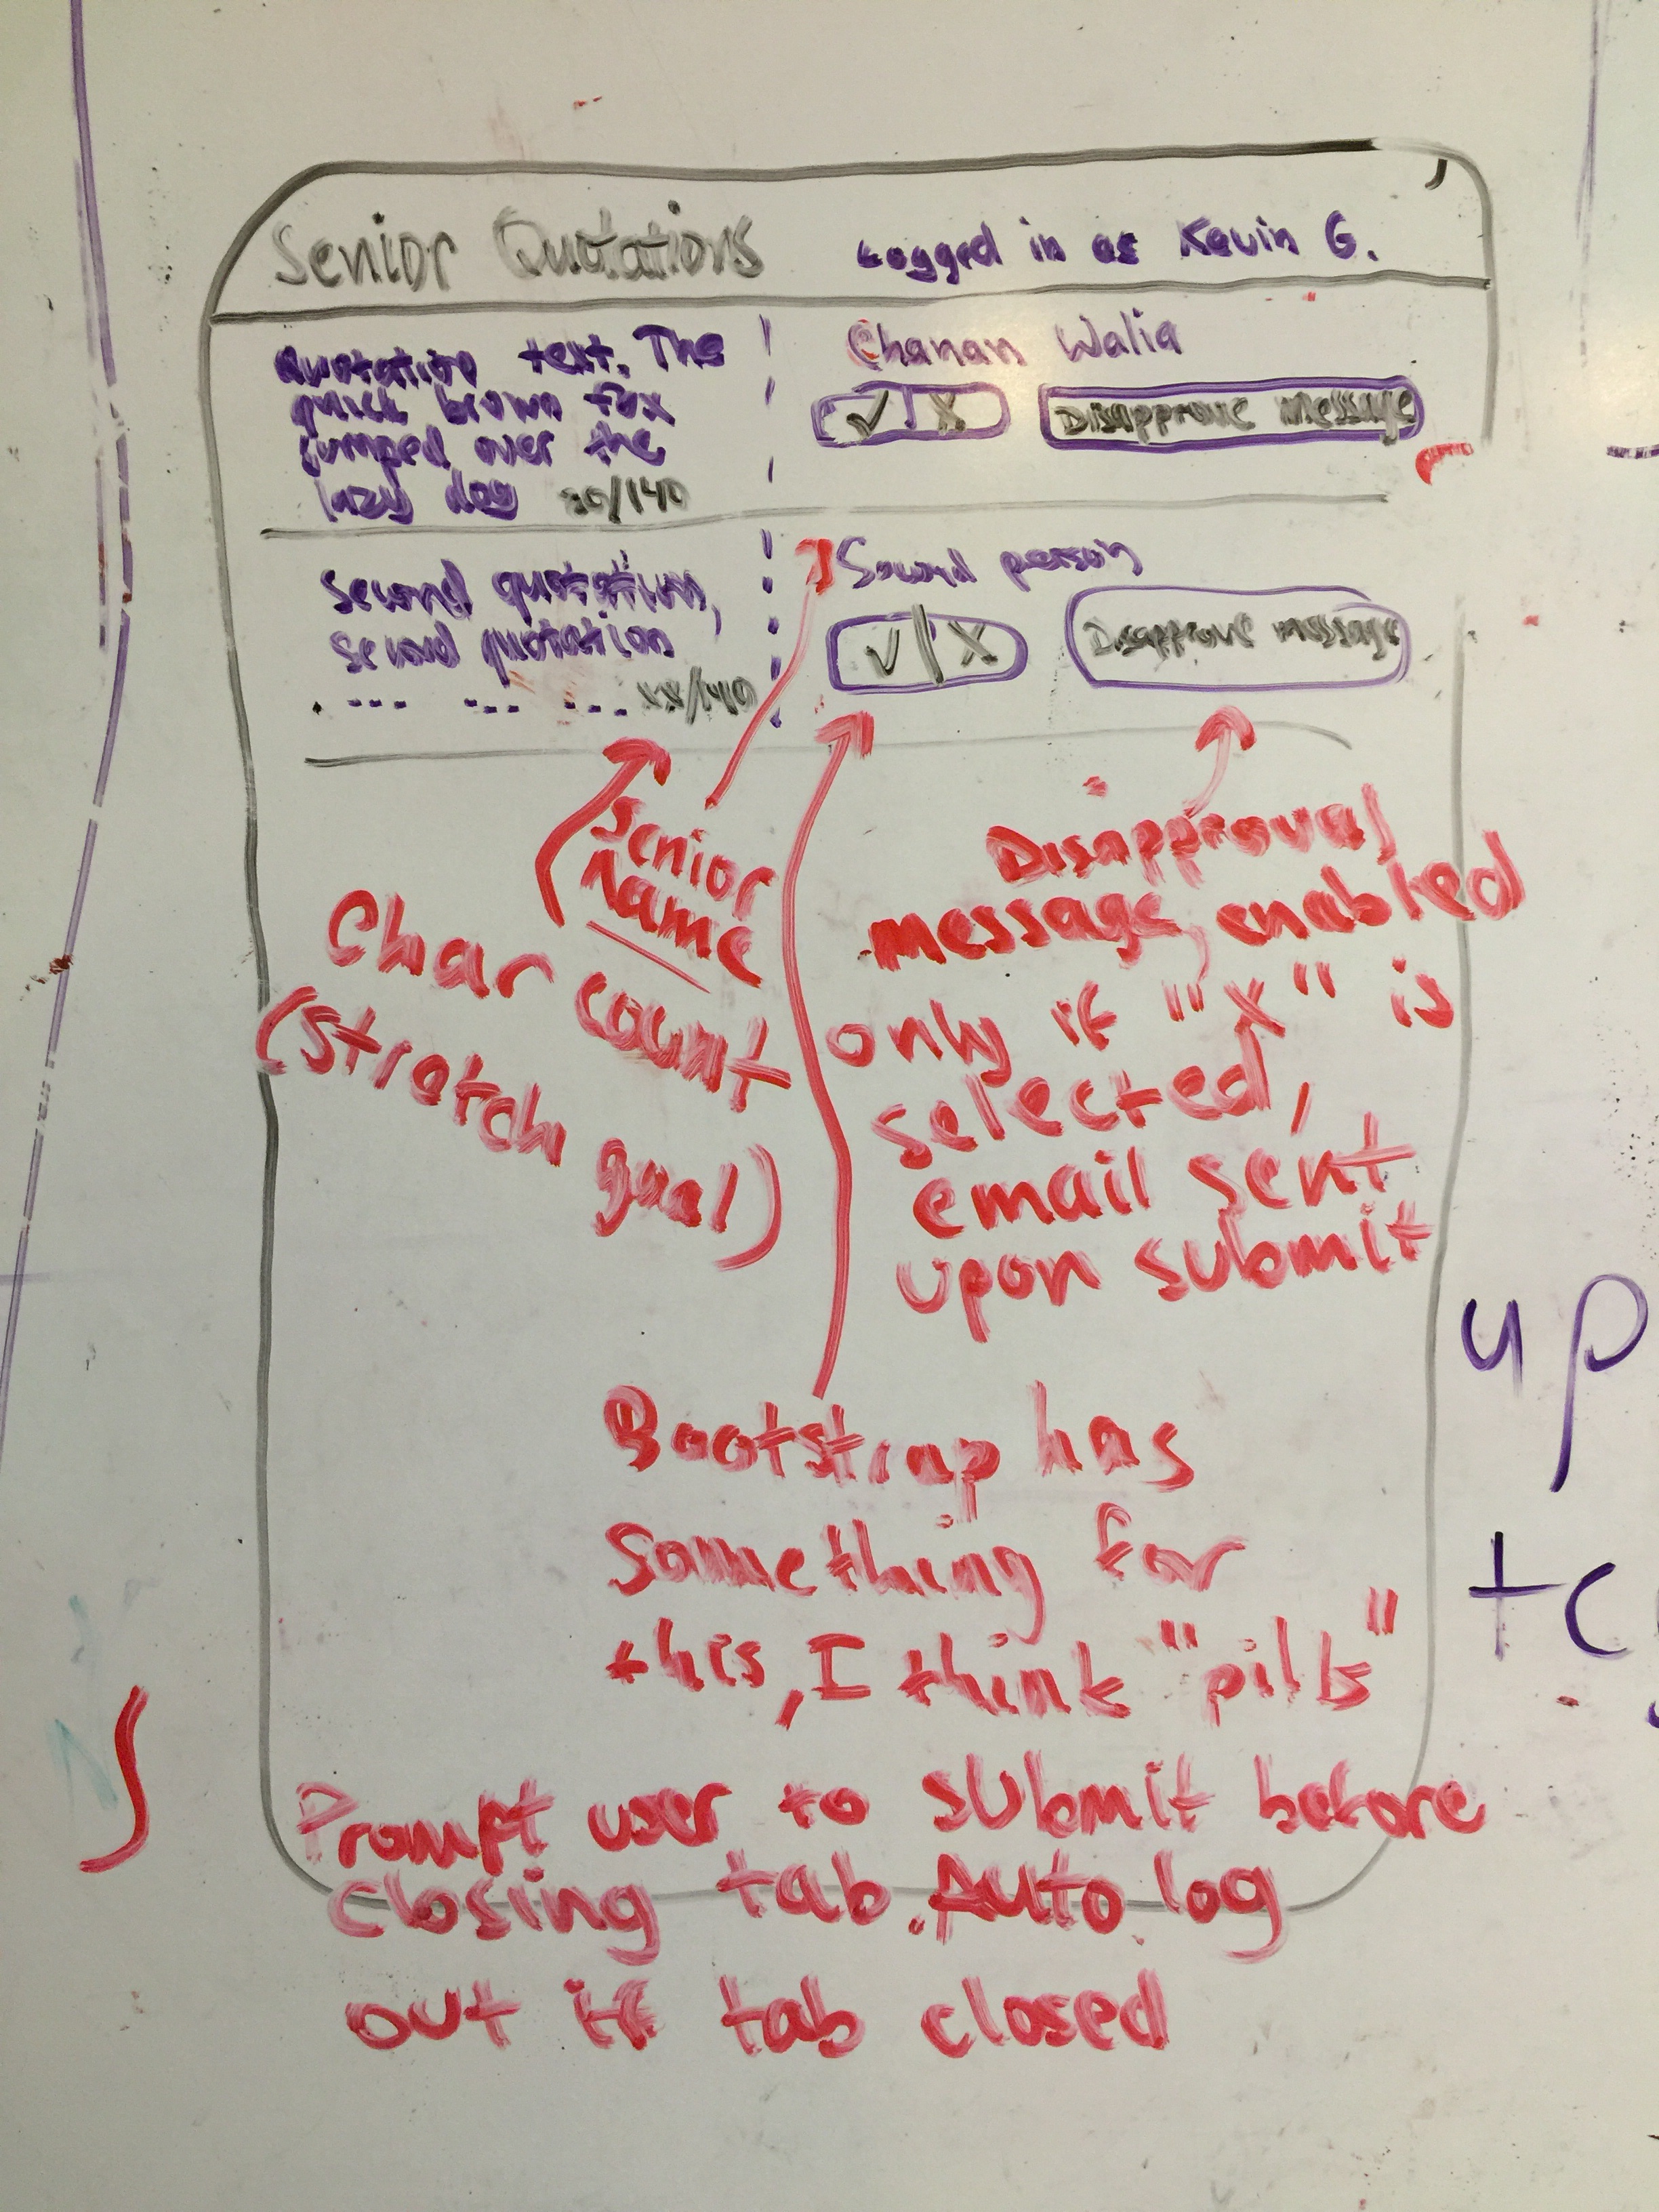 Senior Quotations
Logged in as Kevin G.
Quotation text. The
quick brown fox
jumped over the
lazy dog /140
Chanan Walia
✓ | X
Disapprove message
Second quotation,
second quotation
. --- --- ... xx/140
Second person
✓ | X
Disapprove message
Senior
name
Char count
(stretch goal)
Disapproval
message, enabled
only if "X" is
selected,
email sent
upon submit
Bootstrap has
something for
this, I think "pills"
Prompt user to submit before
closing tab. Auto log
out if tab closed
up